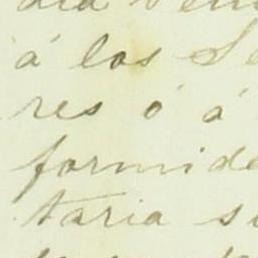 á los Se
res ó á
formide
taria su